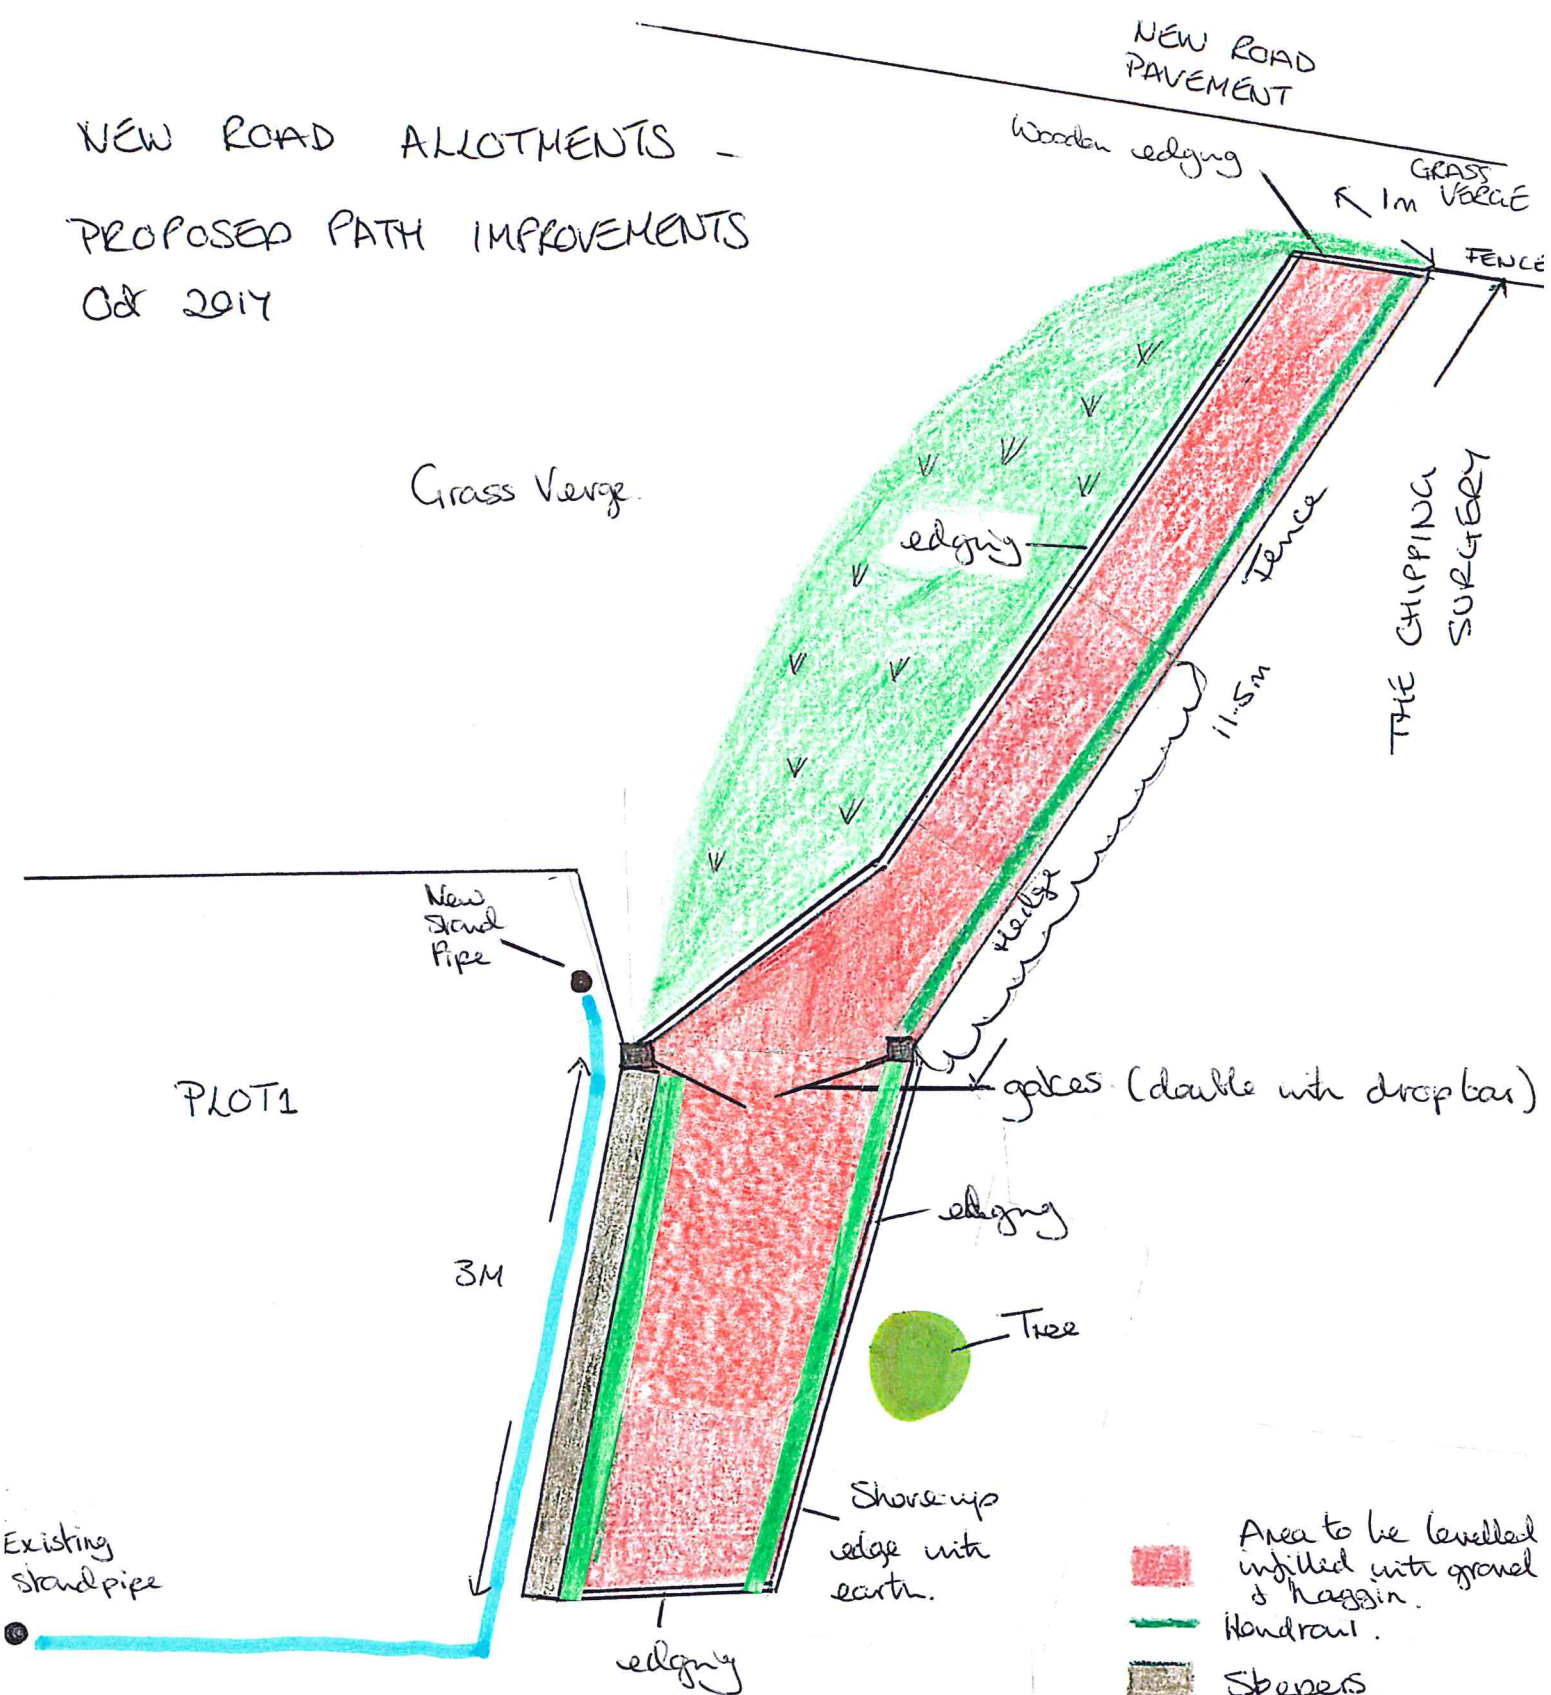 NEW ROAD ALLOTMENTS -
PROPOSED PATH IMPROVEMENTS
Oct 2014
NEW ROAD
PAVEMENT
Wooden edging
GRASS
VERGE
1m
FENCE
Grass Verge.
edging
Fence
THE CHIPPING
SURGERY
11.5m
Hedge
New
Stand
Pipe
PLOT1
gates (double with drop bar)
edging
3M
Tree
Shore up
edge with
earth.
Existing
standpipe
edging
Area to be levelled
infilled with gravel
& hoggin.
Handrail.
Sleepers